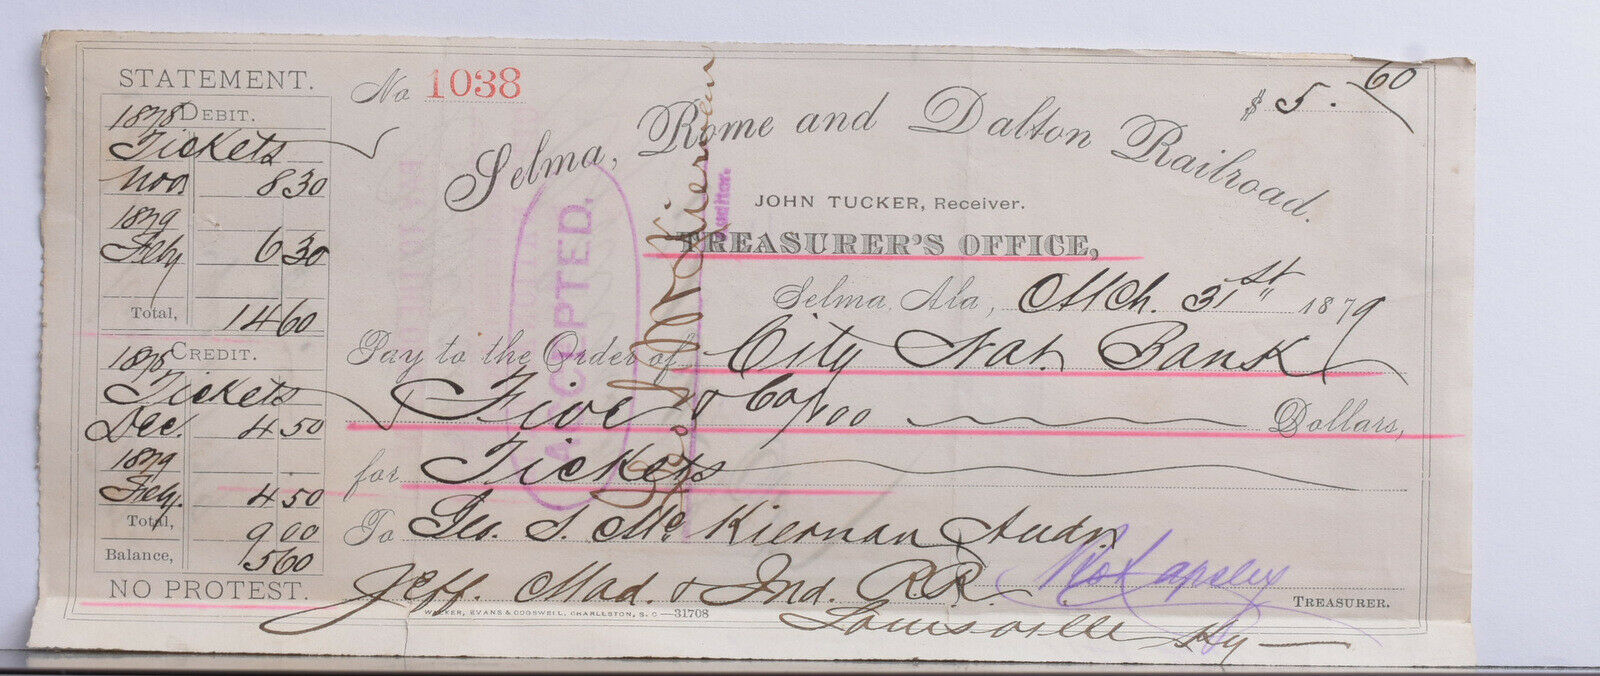 STATEMENT.
1878 DEBIT.
Tickets
Nov. 8 30
1879
Feby 6 30
Total, 14 60
1878 CREDIT.
Tickets
Dec. 4 50
1879
Feby. 4 50
Total, 9 00
Balance, 5 60
NO PROTEST.
No 1038
$ 5. 60
Selma, Rome and Dalton Railroad.
JOHN TUCKER, Receiver.
TREASURER'S OFFICE,
Selma, Ala, Mch. 31st 1879
Pay to the Order of City Nat. Bank
Five & 60/100 Dollars,
for Tickets
To Geo. S. McKiernan Audr.
Jeff. Mad. & Ind. R.R.
Louisville Ky
TREASURER.
WALKER, EVANS & COGSWELL, CHARLESTON, S. C.—31708
ACCEPTED.
Auditor.